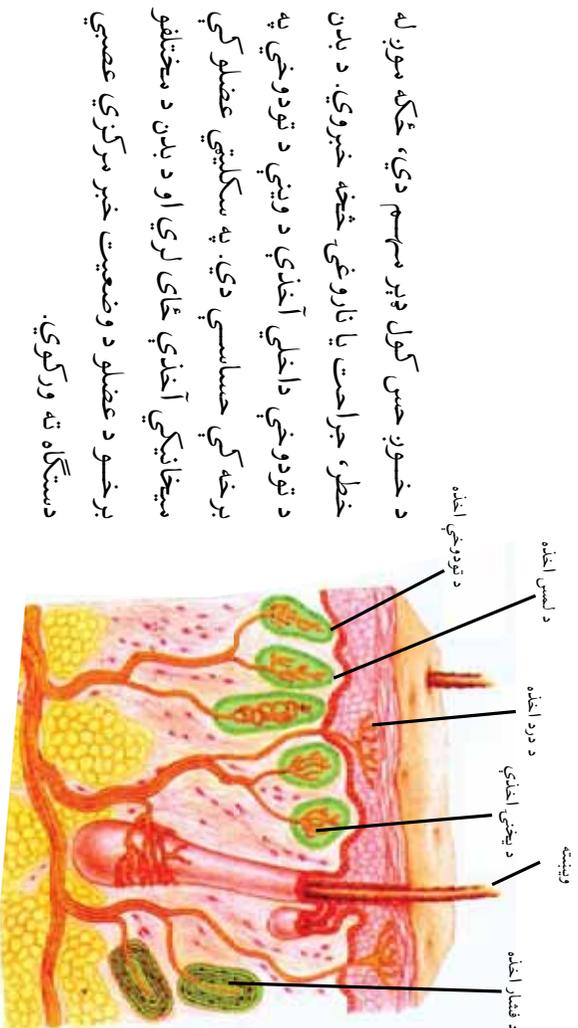 د خوږ حس کول ډېر مهم دي، ځکه موږ له
خطر، جراحت یا ناروغۍ څخه خبروي. د بدن
د تودوخې داخلي آخذې د وینې د تودوخې په
برخه کې حساسې دي. په سکلیټي عضلو کې
میخانیکي آخذې ځای لري او د بدن د مختلفو
برخو د عضلو د وضعیت خبر مرکزي عصبي
دستګاه ته ورکوي.
د تودوخې اخذه
د لمس اخذه
د درد اخذه
د یخنۍ اخذې
ویښته
د فشار اخذه